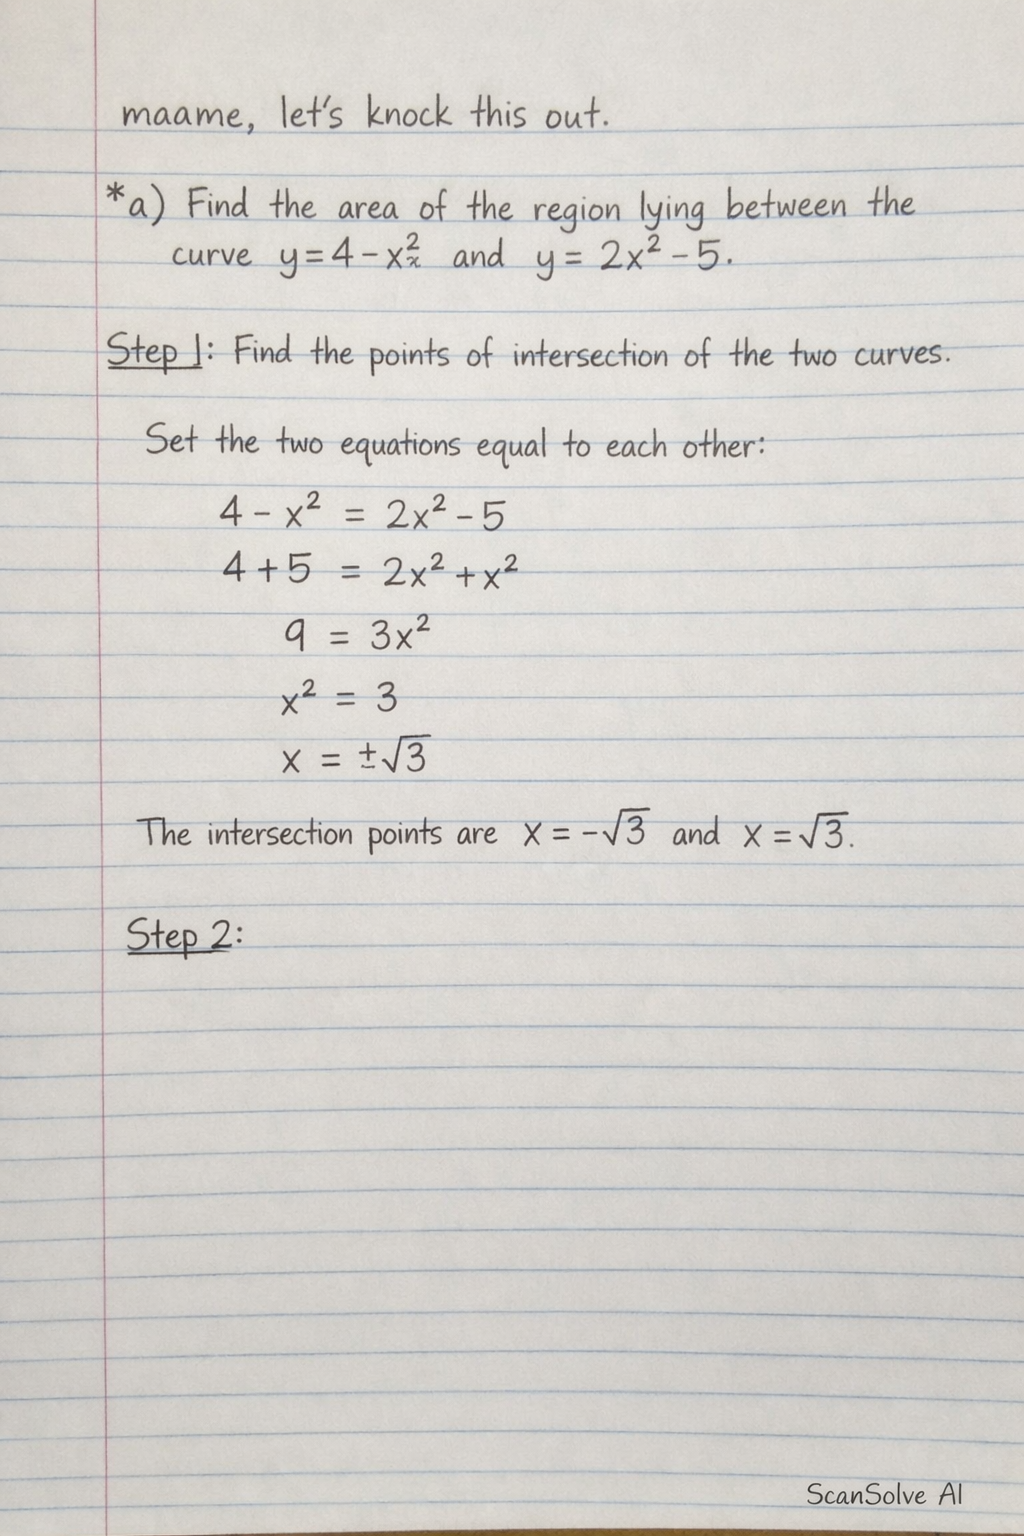 maame, let's knock this out.
*a) Find the area of the region lying between the
curve y = 4 - x²ₓ and y = 2x² - 5.
Step 1: Find the points of intersection of the two curves.
Set the two equations equal to each other:
4 - x² = 2x² - 5
4 + 5 = 2x² + x²
9 = 3x²
x² = 3
x = ±√3
The intersection points are x = -√3 and x = √3.
Step 2:
ScanSolve AI